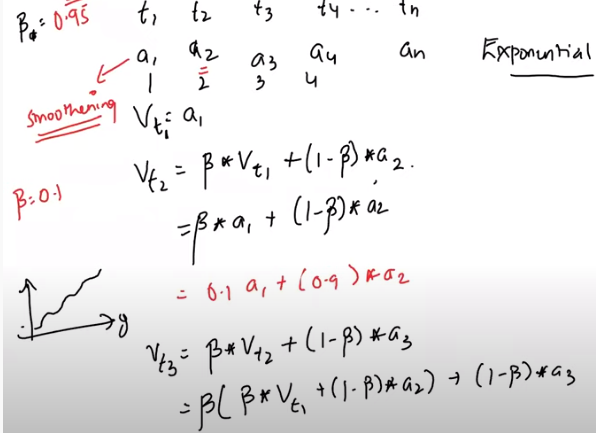 β₀ = 0.95 t₁ t₂ t₃ t₄ ... tₙ
a₁ a₂ a₃ a₄ aₙ Exponential
1 2 3 4
Smoothening V_{t₁} = a₁
V_{t₂} = β * V_{t₁} + (1-β) * a₂.
β = 0.1
= β * a₁ + (1-β) * a₂
= 0.1 a₁ + (0.9) * a₂
y
V_{t₃} = β * V_{t₂} + (1-β) * a₃
= β( β * V_{t₁} + (1-β) * a₂) + (1-β) * a₃